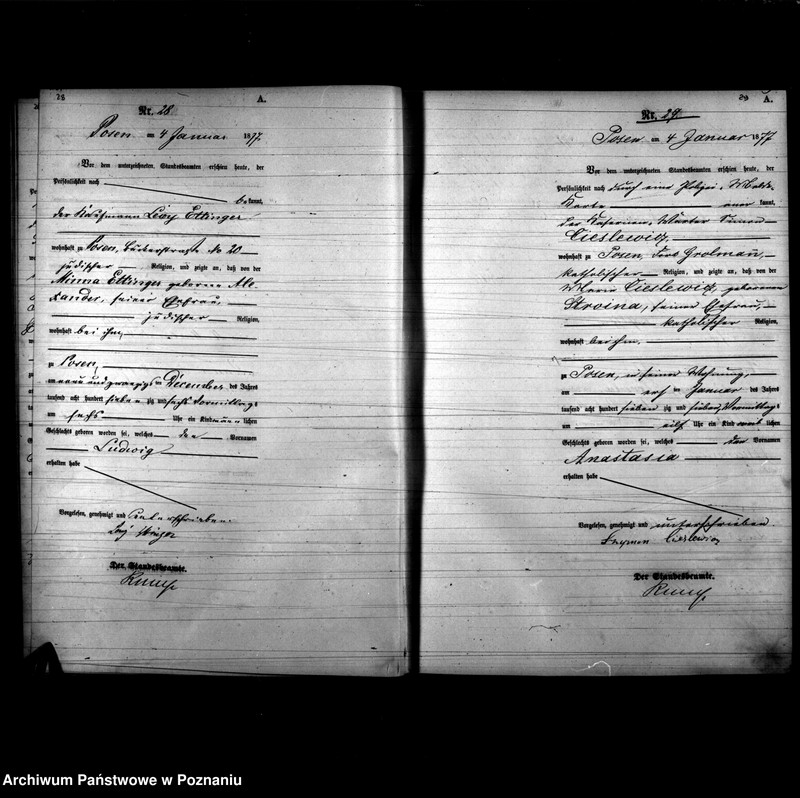 28 A.
Nr. 28
Posen am 4 Januar 1877.
Vor dem unterzeichneten Standesbeamten erschien heute, der
Persönlichkeit nach
bekannt,
der Kaufmann Levy Ettinger
wohnhaft zu Posen, No 20
jüdischer Religion, und zeigte an, daß von der
Minna Ettinger geborene Ale-
xander, seiner Ehefrau,
jüdischer Religion,
wohnhaft bei ihm,
zu Posen,
am neun und zwanzigsten December des Jahres
tausend acht hundert sieben zig und sechs Vormittags
um sechs Uhr ein Kind männlichen
Geschlechts geboren worden sei, welches den Vornamen
Ludwig
erhalten habe
Vorgelesen, genehmigt und unterschrieben.
Der Standesbeamte.
29 A.
Nr. 29.
Posen am 4 Januar 1877
Vor dem unterzeichneten Standesbeamten erschien heute, der
Persönlichkeit nach durch eine Polizei-
Karte aner kannt,
der Kasernen-Wärter Simon
Cieslewicz,
wohnhaft zu Posen, Fort Grolmann,
katholischer Religion, und zeigte an, daß von der
Maria Cieslewicz, geborenen
Stroina, seiner Ehefrau,
katholischer Religion,
wohnhaft bei ihm,
zu Posen, in seiner Wohnung,
am ersten Januar des Jahres
tausend acht hundert sieben zig und sieben Vormittags
um Uhr ein Kind weiblichen
Geschlechts geboren worden sei, welches den Vornamen
Anastasia
erhalten habe
Vorgelesen, genehmigt und unterschrieben.
Szymon Cieslewicz
Der Standesbeamte.
Archiwum Państwowe w Poznaniu